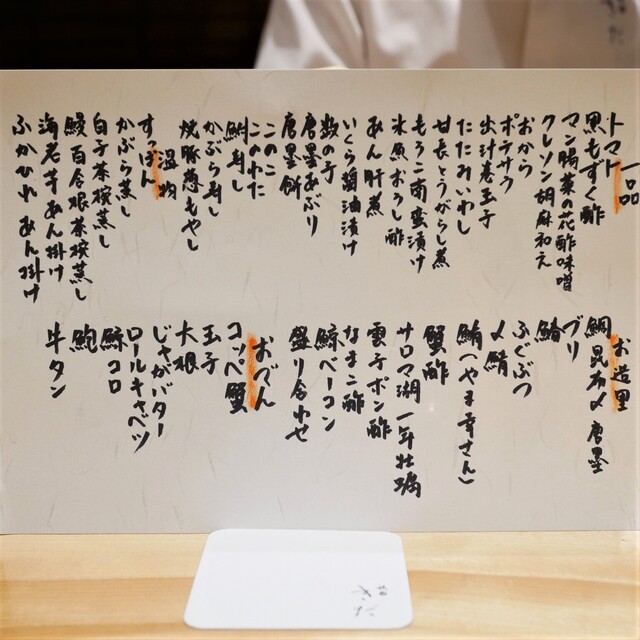 一品
トマト
黒もずく酢
マン鯛菜の花酢味噌
クレソン胡麻和え
おから
ポテサラ
出汁巻玉子
たたみいわし
甘長とうがらし煮
もろこ南蛮漬け
氷魚おろし酢
あん肝煮
いくら醤油漬け
数の子
唐墨あぶり
唐墨餅
このこ
このわた
鮒寿し
かぶら寿し
焼豚葱もやし
温物
すっぽん
かぶら蒸し
白子茶碗蒸し
鰻百合根茶碗蒸し
海老芋あん掛け
ふかひれあん掛け
お造里
鯛昆布〆唐墨
ブリ
鰆
ふぐぶつ
〆鯖
鮪(やま幸さん)
蟹酢
サロマ湖一年牡蠣
雲子ポン酢
なまこ酢
鯨ベーコン
盛り合わせ
おでん
コッペ蟹
玉子
大根
じゃがバター
ロールキャベツ
鯨コロ
鮑
牛タン